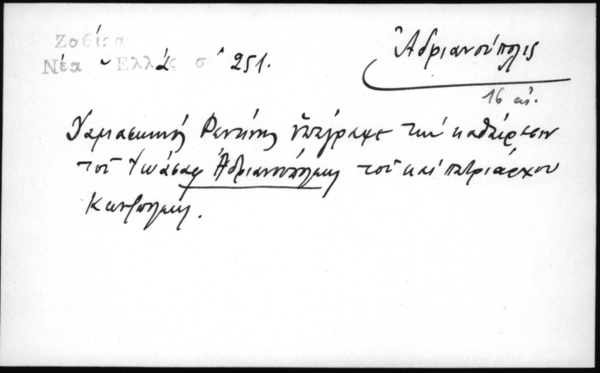 Ζαβίρα
Νέα Ἑλλάς σ. 251.
Ἀδριανούπολις
16 αἰ.
Δαμασκηνός Ρενδίνης ὑπέγραψε τήν καθαίρεσιν
τοῦ Ἰωάσαφ Ἀδριανουπόλεως τοῦ καί πατριάρχου
Κων/πόλεως.